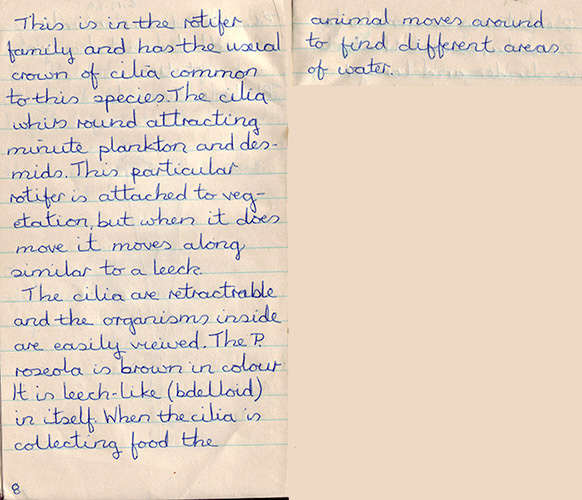 This is in the rotifer
family and has the usual
crown of cilia common
to this species. The cilia
whirs round attracting
minute plankton and des-
mids. This particular
rotifer is attached to veg-
etation, but when it does
move it moves along
similar to a leech.
The cilia are retractrable
and the organisms inside
are easily viewed. The P.
roseola is brown in colour
It is leech-like (bdelloid)
in itself. When the cilia is
collecting food the
8
animal moves around
to find different areas
of water.